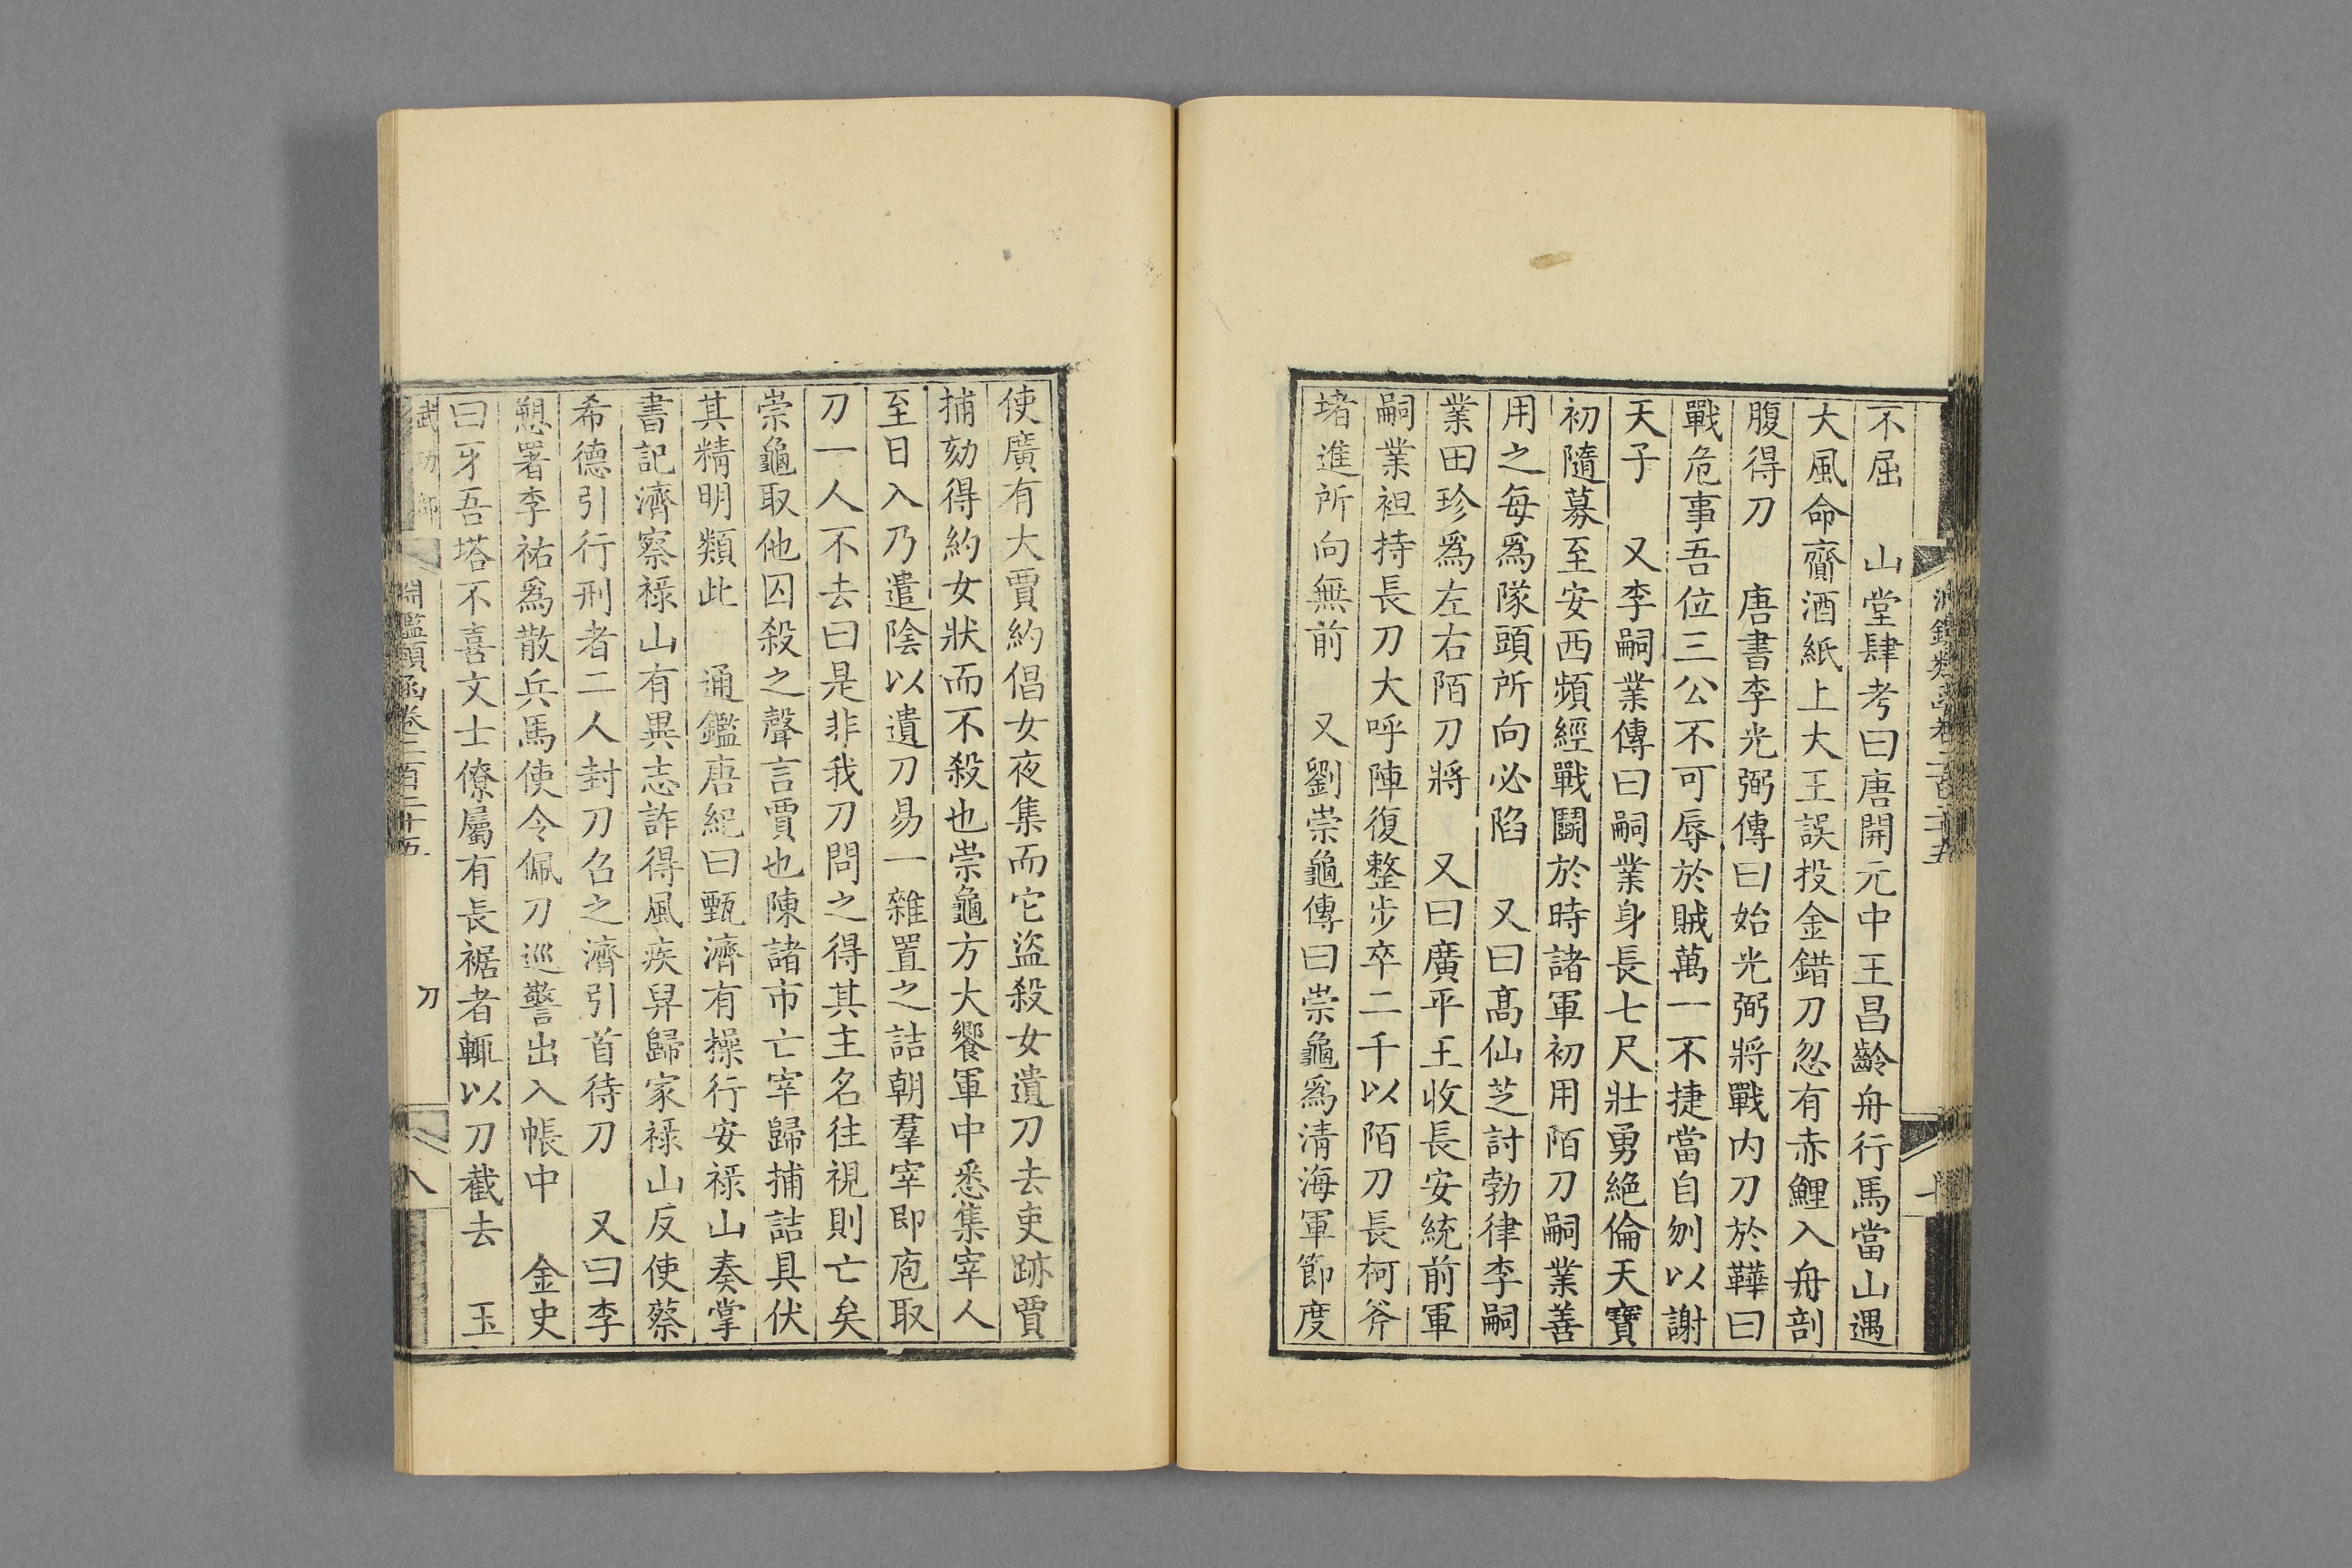 淵鑑類函卷二百二十五
不屈　山堂肆考曰唐開元中王昌齡舟行馬當山遇
大風命齎酒紙上大王誤投金錯刀忽有赤鯉入舟剖
腹得刀　唐書李光弼傳曰始光弼將戰内刀於鞾曰
戰危事吾位三公不可辱於賊萬一不捷當自刎以謝
天子　又李嗣業傳曰嗣業身長七尺壯勇絶倫天寶
初隨募至安西頻經戰鬬於時諸軍初用陌刀嗣業善
用之每爲隊頭所向必陷　又曰髙仙芝討勃律李嗣
業田珍爲左右陌刀將　又曰廣平王收長安統前軍
嗣業袒持長刀大呼陣復整步卒二千以陌刀長柯斧
堵進所向無前　又劉崇龜傳曰崇龜爲清海軍節度
使廣有大賈約倡女夜集而它盜殺女遺刀去吏跡賈
捕劾得約女狀而不殺也崇龜方大饗軍中悉集宰人
至日入乃遣陰以遺刀易一雜置之詰朝羣宰即庖取
刀一人不去曰是非我刀問之得其主名往視則亡矣
崇龜取他囚殺之聲言賈也陳諸市亡宰歸捕詰具伏
其精明類此　通鑑唐紀曰甄濟有操行安禄山奏掌
書記濟察禄山有異志詐得風疾舁歸家禄山反使蔡
希德引行刑者二人封刀召之濟引首待刀　又曰李
愬署李祐爲散兵馬使令佩刀巡警出入帳中　金史
曰牙吾塔不喜文士僚屬有長裾者輒以刀截去　玉
淵鑑類函卷二百二十五　刀　八